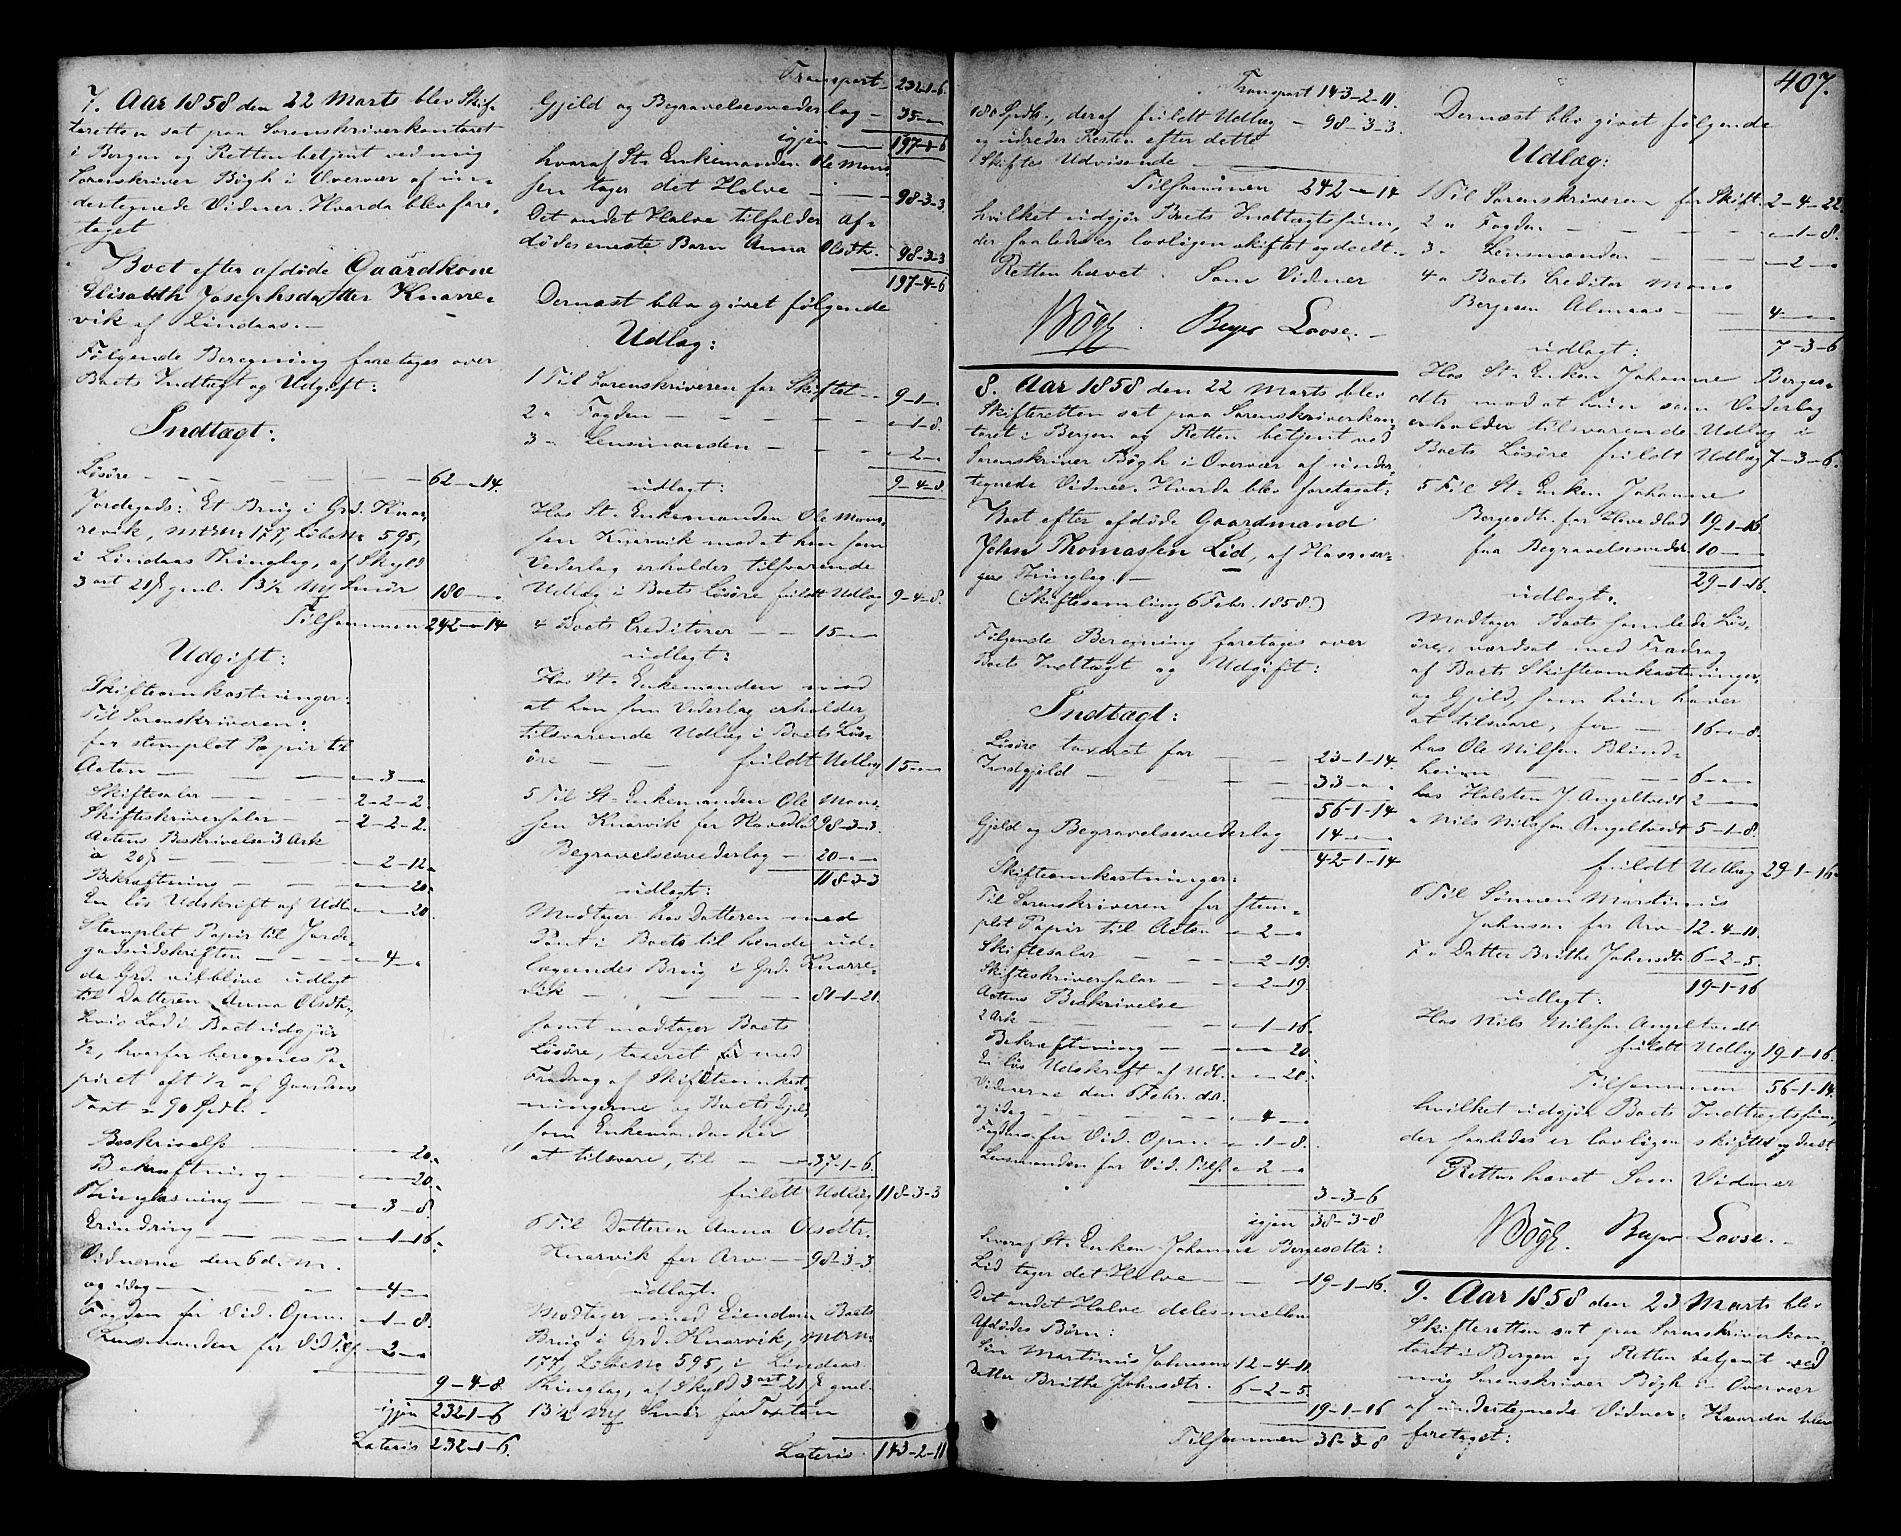 7. Aar 1858 den 22 Marts blev Skif-
teretten sat paa Sorenskriverkontoret
i Bergen og Retten betjent ved mig
Sorenskriver Bøgh i Overvær af un-
dertegnede Vidner. Hvorda blev fore-
taget
Boet efter afdøde Gaardkone
Elisabeth Josephsdatter Knarre-
vik af Lindaas.-
Følgende Beregning foretages over
Boets Indtægt og Udgift:
Indtægt:
Løsøre - - - - 62-"-14.
Jordegods: Et Brug i Grd. Knar-
revik, Mtr No 177, Løbe No 595,
i Lindaas Thinglag, af Skyld
3 ort 21 ß gml. 13½ Mk Smør 180-"-"
Tilsammen 242-"-14
Udgift:
Skifteomkostninger:
Til Sorenskriveren:
for stemplet Papir til
Acten - - - "-3-"
Skiftesalær - - - 2-2-2.
Skifteskriversalær - - 2-2-2.
Actens Beskrivelse 3 Ark
a 20 ß - - - "-2-12.
Bekræftning - - "-"-20.
En løs Udskrift af Udl. "-"-20.
Stemplet Papir til Jorde-
godsudskriften - - - "-4-"
da Grd. vil blive udlagt
til Datteren Anna Olsdtr.
hvis Lod i Boet udgjør
½, hvorfor beregnes Pa-
piret eft ½ af Gaardens
Taxt = 90 Spdl. -
Beskrivelse "-"-20.
Bekræftning - - "-"-20.
Thinglæsning - - "-3-8.
Erindring - - - "-1-16.
Vidnerne den 6 d. M.
og idag - - - "-4-"
Fogden for Vid. Opn. - "-1-8.
Lensmanden for Vid. Tilf. "-2-"
9-4-8.
igjen 232-1-6
Lateris 232-1-6.
Transport 232-1-6.
Gjeld og Begravelsesvederlag - 35-"-"
igjen 197-1-6
hvoraf St. Enkemanden Ole Mons-
sen tager det Halve - - 98-3-3.
Det andet Halve tilfalder af-
dødes eneste Barn Anna Olsdtr. 98-3-3
197-4-6
Dernæst blev givet følgende
Udlæg:
1 Til Sorenskriveren for Skiftet - 9-1-"
2 " Fogden - - - - "-1-8.
3 " Lensmanden - - - "-2-"
9-4-8.
udlagt:
Hos St. Enkemanden Ole Mons-
sen Knarvik mod at han som
Vederlag erholder tilsvarende
Udlæg i Boets Løsøre fuldt Udlæg 9-4-8.
4 Boets Creditorer - - 15-"-"
udlagt:
Hos St. Enkemanden mod
at han som Vederlag erholder
tilsvarende Udlæg i Boets Løs-
øre - - fuldt Udlæg 15-"-"
5 Til St. Enkemanden Ole Mons-
sen Knarvik for Hovedlod 98-3-3.
Begravelsesvederlag - 20-"-"
118-3-3
udlagt:
Modtager hos Datteren med
Pant i Boets til hende ud-
læggendes Brug i Grd. Knarre-
vik - - - - 81-1-21.
samt modtager Boets
Løsøre, taxeret for med
Fradrag af Skifteomkost-
ningerne og Boets Gjeld
som Enkemanden har
at tilsvare, til - - 37-1-6.
fuldt Udlæg 118-3-3
6 Til Datteren Anna Olsdtr.
Knarvik for Arv - 98-3-3.
udlagt.
Modtager med Eiendom Boets
Brug i Grd. Knarvik, Mtr No
177, Løbe No 595, i Lindaas
Thinglag, af Skyld 3 ort 21 ß gml.
13½ Mk Smør for Taxten
Lateris 143-2-11
Transport 143-2-11.
180 Spdlr., deraf fuldt Udlæg - 98-3-3.
og udreder Resten efter dette
Skiftes Udvisende -
Tilsammen 242-"-14
hvilket udgjør Boets Indtægtssum,
der saaledes er lovligen skiftet og deelt.
Retten hævet. Som Vidner
Bøgh. Beyer Loose.-
8. Aar 1858 den 22 Marts blev
Skifteretten sat paa Sorenskriverkon-
toret i Bergen og Retten betjent ved
Sorenskriver Bøgh i Overvær af under-
tegnede Vidner. Hvorda blev foretaget:
Boet efter afdøde Gaardmand
John Thomassen Lid, af Hammer-
gjes Thinglag. -
(Skiftesamling 6 Febr. 1858.)
Følgende Beregning foretages over
Boets Indtægt og Udgift:
Indtægt:
Løsøre taxeret for - - 23-1-14.
Indgjeld - - - 33-"-"
56-1-14
Gjeld og Begravelsesvederlag 14-"-"
42-1-14
Skifteomkostninger:
Til Sorenskriveren for stem-
plet Papir til Acten "-2-"
Skiftesalær - - - "-2-19.
Skifteskriversalær - - "-2-19
Actens Beskrivelse
2 Ark - - - "-1-16.
Bekræftning - - "-"-20.
En løs Udskrift af Udl. "-"-20.
Vidnerne den 6 Febr. d.A.
og idag - - - "-4-"
Fogden for Vid. Opn. "-1-8.
Lensmanden for Vid. Tilf. "-2-"
3-3-6
igjen 38-3-8.
hvoraf St. Enken Johanne Bergesdtr.
Lid tager det Halve - - 19-1-16.
Det andet Halve deles mellem
Afdødes Børn:
Søn Martinus Johnsen 12-4-11.
Datter Brithe Johnsdtr. 6-2-5.
19-1-16
Tilsammen 38-3-8
407.
Dernæst blev givet følgende
Udlæg:
1 Til Sorenskriveren for Skift. 2-4-22.
2 " Fogden - - - - "-1-8.
3 " Lensmanden - - - "-2-"
4 " Boets Creditor Mons
Bergesen Almaas - - 4-"-"
7-3-6
udlagt:
Hos St. Enken Johanne Berges-
dtr. mod at hun som Vederlag
erholder tilsvarende Udlæg i
Boets Løsøre fuldt Udlæg 7-3-6.
5 Til St. Enken Johanne
Bergesdtr. for Hovedlod 19-1-16
for Begravelsesvedr. 10-"-"
29-1-16.
udlagt:
Modtager Boets samlede Løs-
øre, værdsat med Fradrag
af Boets Skifteomkostninger
og Gjeld, som hun haver
at tilsvare, for - - 16-"-8.
hos Ole Nilsen Blind-
heim - - - 6-"-"
hos Halsten J. Angeltvedt 2-"-"
" Nils Nilssen Angeltvedt 5-1-8.
fuldt Udlæg 29-1-16.
6 Til Sønnen Martinus
Johnsen for Arv - 12-4-11.
7 " Datter Brithe Johnsdtr. 6-2-5.
19-1-16
udlagt:
Hos Nils Nilssen Angeltvedt
fuldt Udlæg 19-1-16.
Tilsammen 56-1-14.
hvilket udgjør Boets Indtægtssum,
der saaledes er lovligen skiftet og deelt.
Retten hævet Som Vidner
Bøgh. Beyer Loose.-
9. Aar 1858 den 23 Marts blev
Skifteretten sat paa Sorenskriverkon-
toret i Bergen og Retten betjent ved
mig Sorenskriver Bøgh i Overvær
af undertegnede Vidner: Hvorda blev
foretaget: